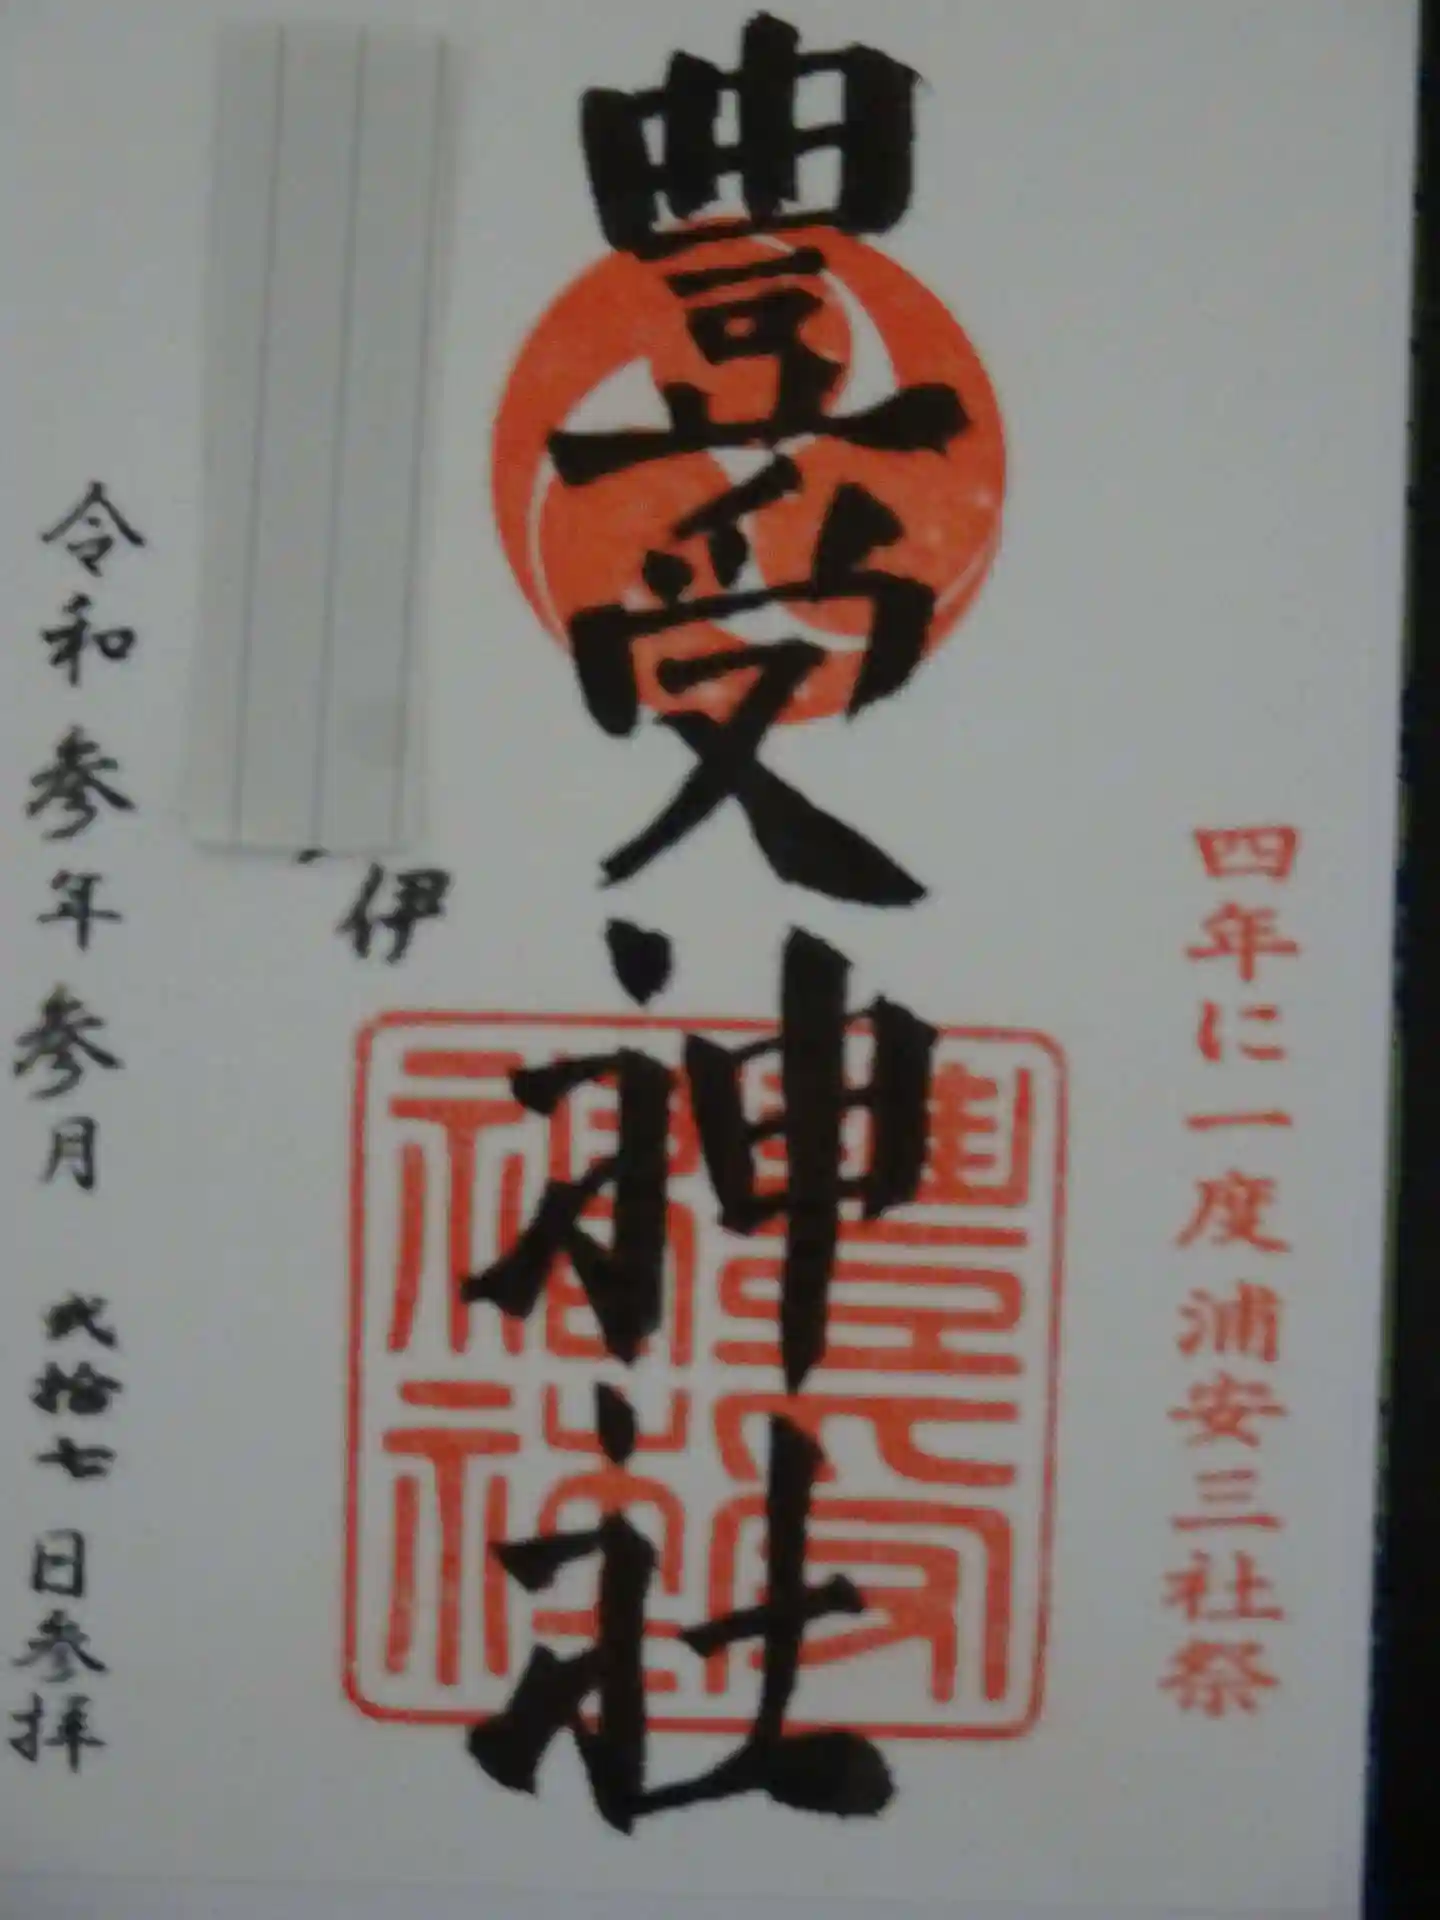 四年に一度浦安三社祭
豊受神社
豊受
神社
伊
令和参年参月弐拾七日参拝